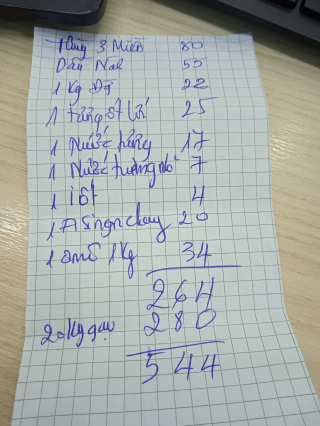 Thùng 3 Miền 80
Dầu 55
1 Kg 22
1 ớt 25
1 Nước hàng 17
1 Nước tương nhỏ 7
1 iốt 4
1 chay 20
1 1Kg 34
264
20kg gạo 280
544